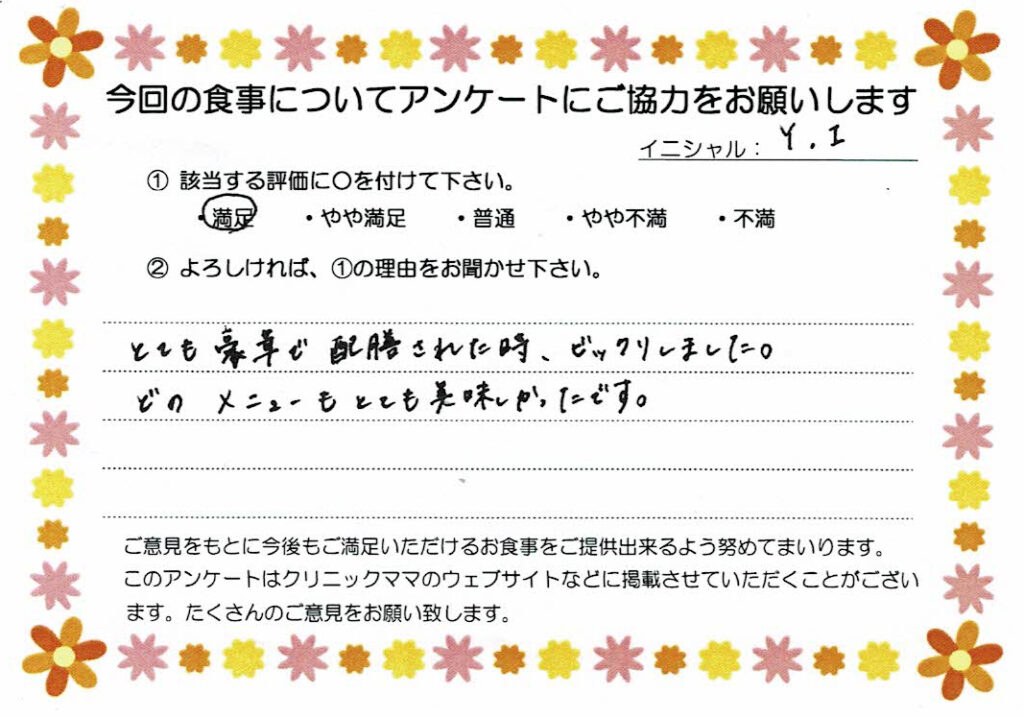 今回の食事についてアンケートにご協力をお願いします
イニシャル： Y.I
① 該当する評価に〇を付けて下さい。
・満足 ・やや満足 ・普通 ・やや不満 ・不満
② よろしければ、①の理由をお聞かせ下さい。
とても豪華で配膳された時、ビックリしました。
どのメニューもとても美味しかったです。
ご意見をもとに今後もご満足いただけるお食事をご提供出来るよう努めてまいります。
このアンケートはクリニックママのウェブサイトなどに掲載させていただくことがござい
ます。たくさんのご意見をお願い致します。